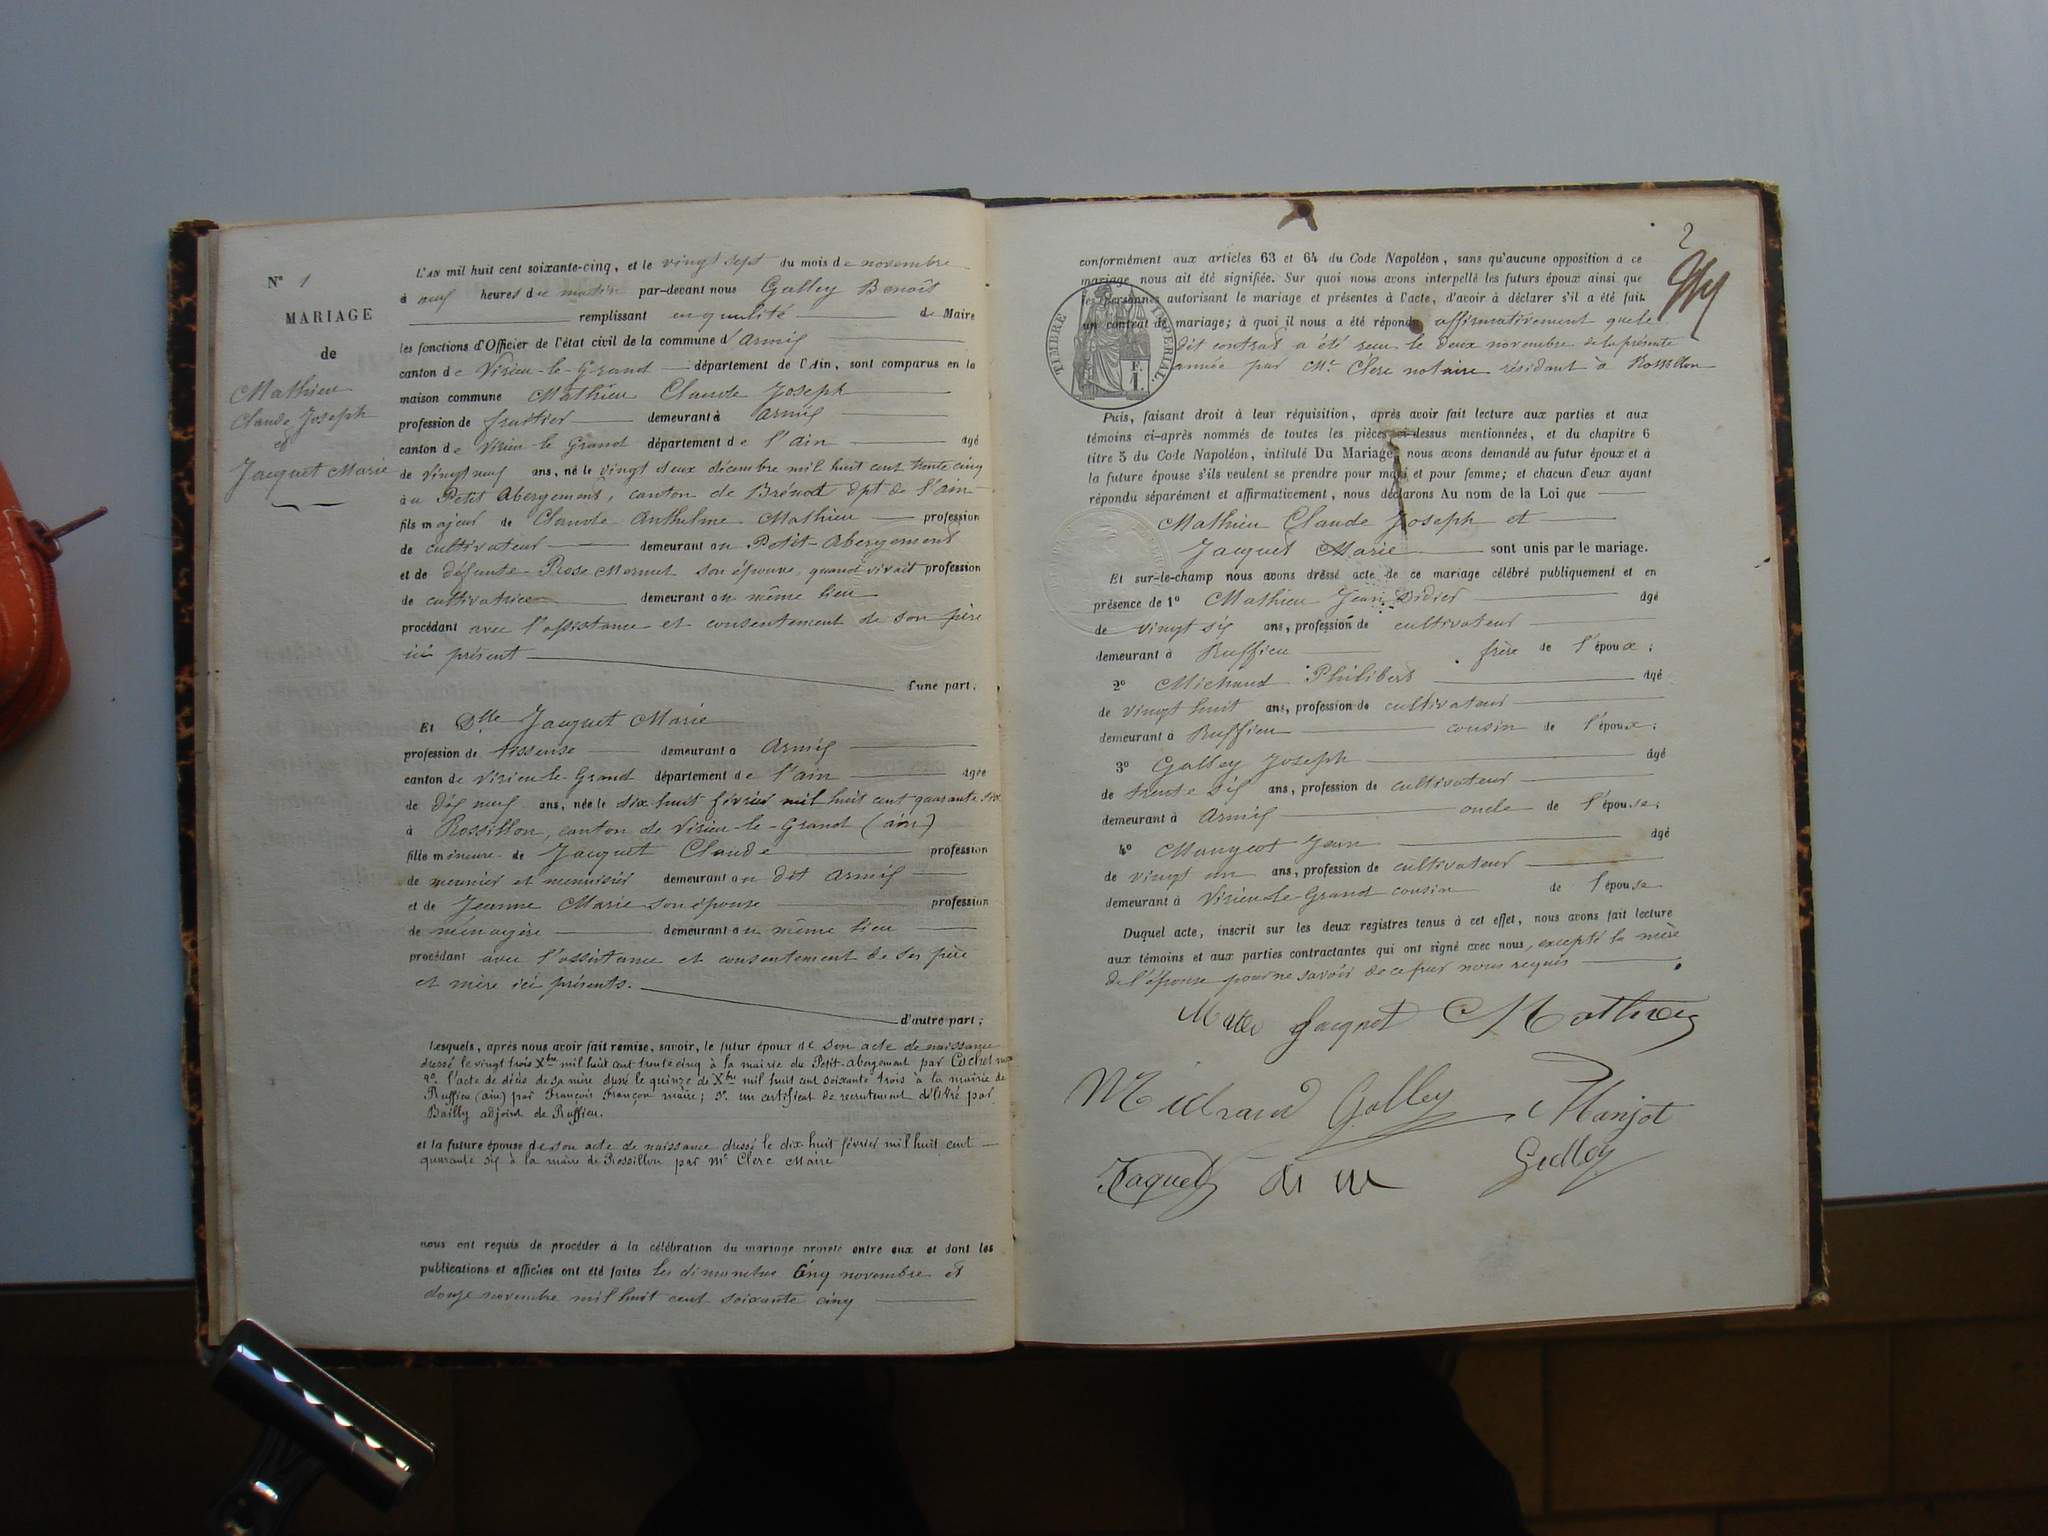 N° 1
MARIAGE
de
Mathieu
Claude Joseph
et
Jacquet Marie
L'AN mil huit cent soixante-cinq, et le vingt sept du mois de novembre
à neuf heures du matin par-devant nous Galley Benoît
remplissant en qualité de Maire
les fonctions d'Officier de l'état civil de la commune d'Armix
canton de Virieu-le-Grand département de l'Ain, sont comparus en la
maison commune Mathieu Claude Joseph
profession de fruitier demeurant à Armix
canton de Virieu-le Grand département de l'ain âgé
de vingt neuf ans, né le vingt deux décembre mil huit cent trente cinq
à u Petit Abergement, canton de Brénod dpt de l'ain
fils majeur de Claude Anthelme Mathieu profession
de cultivateur demeurant au Petit-Abergement
et de défunte Rose Mermet son épouse, quand vivait profession
de cultivatrice demeurant au même lieu
procédant avec l'assistance et consentement de son père
ici présent
d'une part;
Et Dlle Jacquet Marie
profession de tisseuse demeurant à Armix
canton de Virieu-le-Grand département de l'ain âgée
de dix neuf ans, née le dix huit février mil huit cent quarante six
à Rossillon, canton de Virieu-le-Grand (ain)
fille mineure de Jacquet Claude profession
de meunier et menuisier demeurant au dit Armix
et de Jeanne Marie son épouse profession
de ménagère demeurant au même lieu
procédant avec l'assistance et consentement de ses père
et mère ici présents.
d'autre part;
Lesquels, après nous avoir fait remise, savoir, le futur époux de son acte de naissance
dressé le vingt trois Xbre mil huit cent trente cinq à la mairie du Petit-abergement par Cochet
2°. l'acte de décès de sa mère dressé le quinze de Xbre mil huit cent soixante trois à la mairie de
Ruffieu (ain) par François Françon maire; 3°. un certificat de recrutement délivré par
Bailly adjoint de Ruffieu.
et la future épouse de son acte de naissance dressé le dix-huit février mil huit cent
quarante six à la mairie de Rossillon par Mr Clerc Maire
nous ont requis de procéder à la célébration du mariage projeté entre eux et dont les
publications et affiches ont été faites les dimanches Cinq novembre et
douze novembre mil huit cent soixante cinq
2
conformément aux articles 63 et 64 du Code Napoléon, sans qu'aucune opposition à ce
mariage nous ait été signifiée. Sur quoi nous avons interpellé les futurs époux ainsi que
les personnes autorisant le mariage et présentes à l'acte, d'avoir à déclarer s'il a été fait
un contrat de mariage; à quoi il nous a été répondu affirmativement que le
dit contrat a été reçu le deux novembre de la présente
année par Me Clerc notaire résidant à Rossillon
TIMBRE IMPERIAL.
F.
1.
Puis, faisant droit à leur réquisition, après avoir fait lecture aux parties et aux
témoins ci-après nommés de toutes les pièces ci-dessus mentionnées, et du chapitre 6
titre 5 du Code Napoléon, intitulé Du Mariage, nous avons demandé au futur époux et à
la future épouse s'ils veulent se prendre pour mari et pour femme; et chacun d'eux ayant
répondu séparément et affirmaticement, nous déclarons Au nom de la Loi que
Mathieu Claude Joseph et
Jacquet Marie sont unis par le mariage.
Et sur-le-champ nous avons dressé acte de ce mariage célébré publiquement et en
présence de 1° Mathieu Jean Didier âgé
de vingt six ans, profession de cultivateur
demeurant à Ruffieu frère de l'époux;
2° Michaud Philibert âgé
de vingt huit ans, profession de cultivateur
demeurant à Ruffieu cousin de l'époux;
3° Galley Joseph âgé
de trente six ans, profession de cultivateur
demeurant à Armix oncle de l'épouse;
4° Maugeot Jean âgé
de vingt un ans, profession de cultivateur
demeurant à Virieu-le-Grand cousin de l'épouse
Duquel acte, inscrit sur les deux registres tenus à cet effet, nous avons fait lecture
aux témoins et aux parties contractantes qui ont signé avec nous, excepté la mère
de l'épouse pour ne savoir de ce par nous requis
Jacquet Mathieu
Michaud Galley Manjot
Jaquet Galley